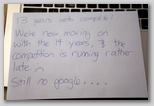 13 years worts complete!
We're now moving on
with the 14 years, & the
competition is running rather
late ^
Still no google....